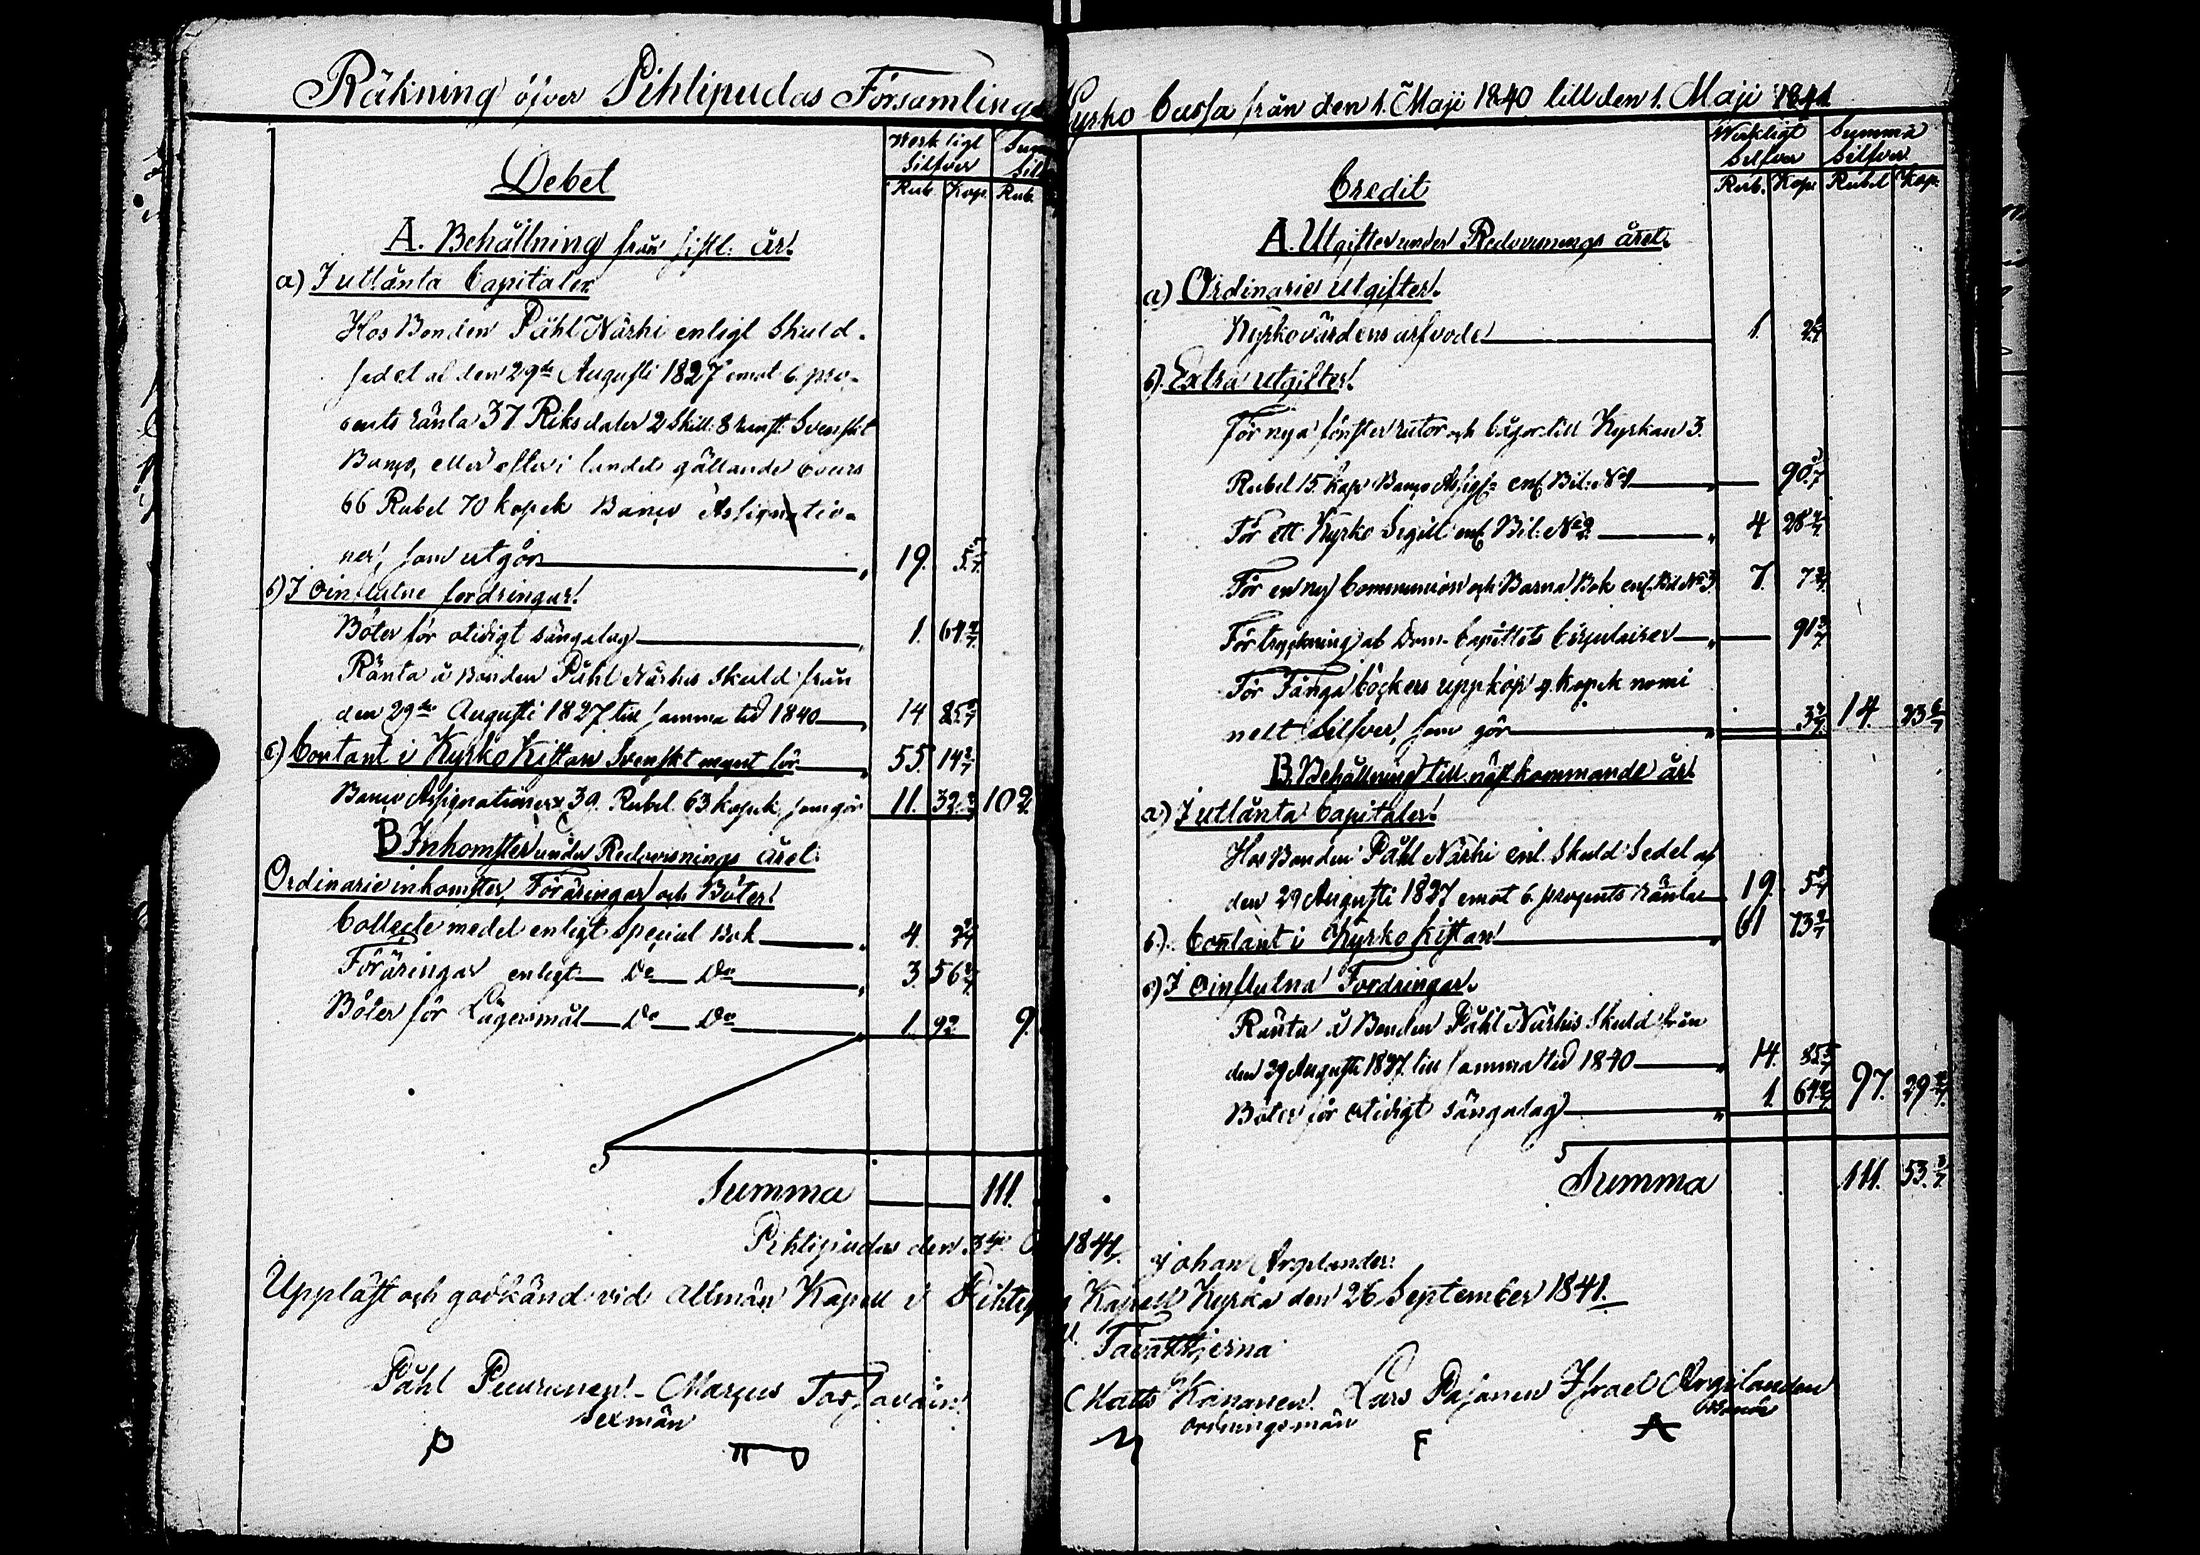 Räkning öfver Pihlipudas Församlings Kyrko Cassa från den 1. Maji 1840 till den 1. Maji 1841
Werkligt Silfver
Rub. Kop. Rub.
Debet
A. Behållning från sistl: år.
a) I utlånta Capitaler
Hos Bonden Påhl Närhi enligt Skuld-
sedel af den 29de Augusti 1827 emot 6. pro-
cents ränta 37 Riksdaler 2 Skill: 8 runst. Svenskt
Banco, eller efter i landet gällande Cours
66 Rubel 70 kopek Banco Assignatio-
ner, som utgör 19. 5 5/7
b) I oinflutne fordringar.
Böter för otidigt sängelag 1. 64 2/7
Ränta å Bonden Påhl Närhis Skuld från
den 29de Augusti 1827 till samma tid 1840 14 85 5/7
c) Contant i Kyrko Kistan Svenskt mynt för 55. 14 2/7
Banco Assignationer 39. Rubel 63 kopek, som gör 11. 32 2/7 102
B Inkomster under Redovisnings året.
Ordinarie inkomster, Föräringar och Böter.
Collecte medel enligt Special Bok 4.
Föräringar enligt Do Do 3. 56 2/7
Böter för Lägersmål Do Do 1. 92 9.
Summa 111.
Werkligt Silfver Summa Silfver
Rub. Kop. Rubel Kop.
Credit
A. Utgifter under Redovisnings året.
a) Ordinarie utgifter.
Kyrkovärdens arfvode 1.
b) Extra utgifter.
För nya fönster rutor och bågar till Kyrkan 3.
Rubel 15. kop Banco Assig: enl. Bil: No 1 90
För ett Kyrko Sigill enl. Bil: No 2. 4 28 4/7
För en ny Communion och Barna Bok enl. Bil No 3. 7. 7
För tryckning af Dom-Capitlets Cirkulairer 91
För Fånga böckers uppköp 4. kopek nomi
nelt Silfver, som gör 3 14. 23 6/7
B. Behållning till näst kommande år.
a) I utlånta Capitaler.
Hos Bonden Påhl Närhi enl. Skuld Sedel af
den 29 Augusti 1827 emot 6. procents ränta 19. 5 5/7
b). Contant i Kyrko Kistan 61 73
c) I oinflutna Fordringar.
Ränta å Bonden Påhl Närhis Skuld från
den 29 Augusti 1827 till samma tid 1840 14. 85 5/7
Böter för otidigt sängelag 1. 64 2/7 97. 29
Summa 111. 53
Pihtipudas den 1841. Johan Argelander:
Uppläst och godkänd vid allmän Kapell i Pihtip Kapell Kyrka den 26 September 1841.
Tavastjerna
Påhl Puuranen Marcus Matts Kananen Lars Pasanen Israel Argilander
Sexmän Ordningsmän